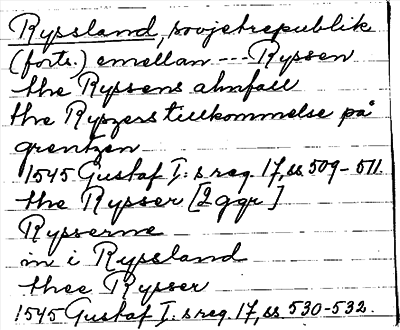 Ryssland, sovjetrepublik
(forts.) emellan --- Ryssen
the Ryssens almfall
the Ryszers tillkommelse på
grentzen
1545 Gustaf I:s reg. 17, ss 509-511.
the Rysser [2 ggr]
Rysserne
in i Ryssland
thee Rysser
1545 Gustaf I:s reg. 17, ss. 530-532.